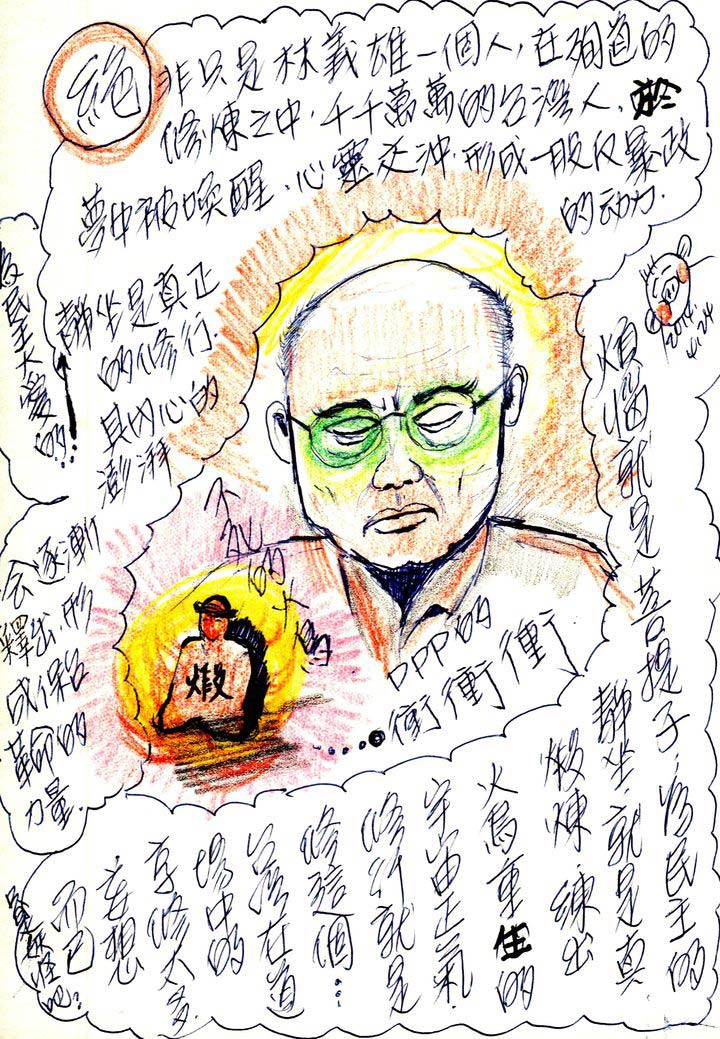 絕非只是林義雄一個人，在殉道的
修煉之中，千千萬萬的台灣人，於
夢中被喚醒、心靈
形成一股反暴政
的动力.
靜坐是真正
的修行.
其內心的
澎湃
會逐漸
釋出，形
成
革命的
力量.
為民主大愛的...
不死的火鳥
煅
DPP的
衝衝衝
2014.
4/24
煩惱就是菩提子，為民主的
靜坐，就是真
煅煉，練出
火鳥重生的
宇宙正氣.
修行就是
修這個...
台灣在道
場中的
享修太多
在想
而已